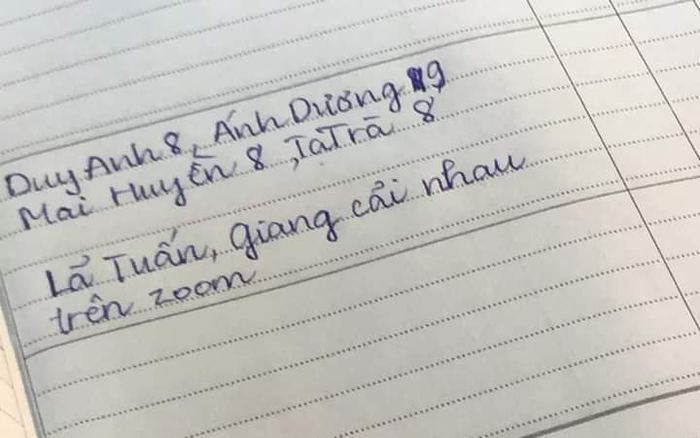 Duy Anh 8, Ánh Dương 9
Mai Huyền 8, Tạ Trà 8
Lã Tuấn, Giang cãi nhau
trên zoom